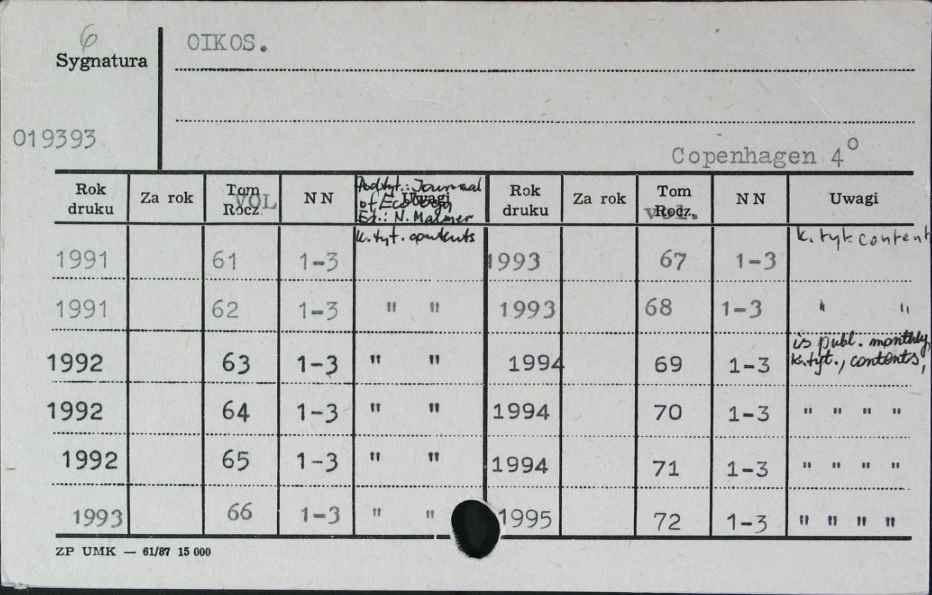 6
OIKOS.
Sygnatura
019393
Copenhagen 4°
Rok druku Za rok Tom Rocz. VOL NN Uwagi Rok druku Za rok Tom Rocz. VOL. NN Uwagi
Podtyt.: Journal
of Ecology
Ed.: N. Malmer
k. tyt. contents k. tyt. content
1991 61 1-3 1993 67 1-3
1991 62 1-3 " " 1993 68 1-3 " "
is publ. monthly,
1992 63 1-3 " " 1994 69 1-3 k. tyt., contents,
1992 64 1-3 " " 1994 70 1-3 " " " "
1992 65 1-3 " " 1994 71 1-3 " " " "
1993 66 1-3 " " 1995 72 1-3 " " " "
ZP UMK — 61/87 15 000